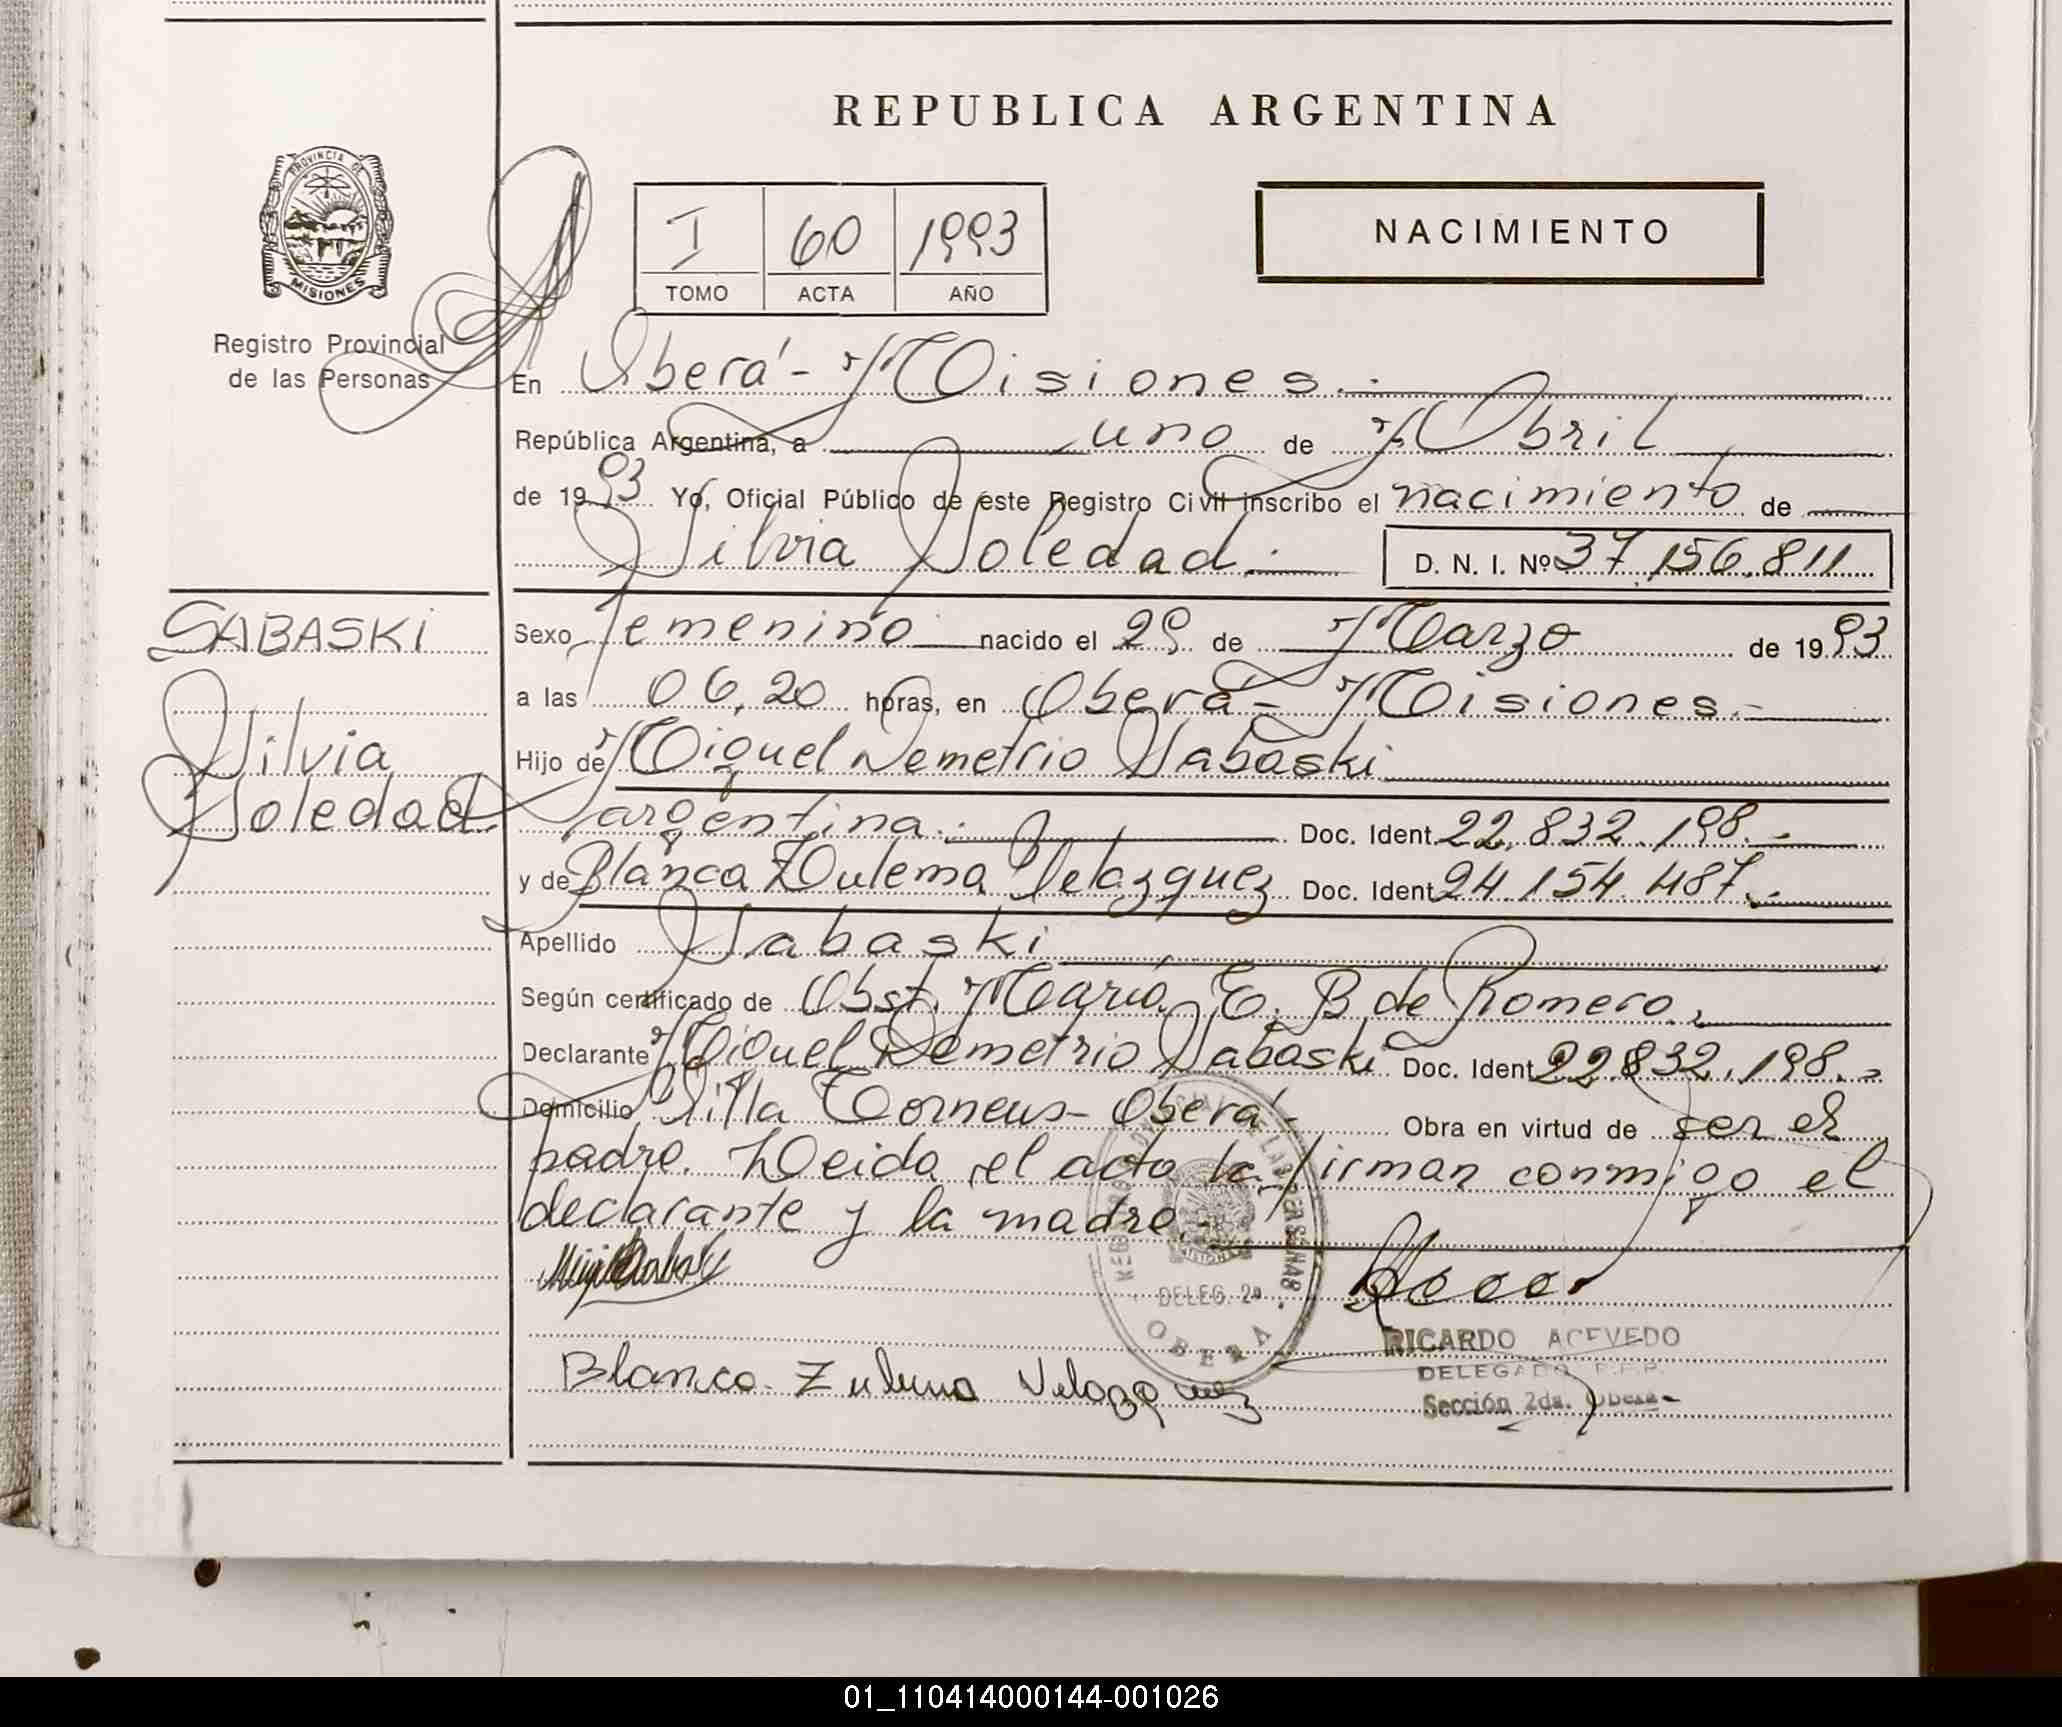 REPUBLICA ARGENTINA
PROVINCIA DE
MISIONES
Registro Provincial
de las Personas
I 60 1993
TOMO ACTA AÑO
NACIMIENTO
En Oberá - Misiones.-
República Argentina, a uno de Abril
de 1993 Yo, Oficial Público de este Registro Civil inscribo el nacimiento de
Silvia Soledad.- D. N. I. Nº 37.156.811
SABASKI
Silvia
Soledad
Sexo femenino nacido el 29 de Marzo de 1993
a las 06,20 horas, en Oberá - Misiones.-
Hijo de Miguel Demetrio Sabaski
argentina.- Doc. Ident. 22.832.198.-
y de Blanca Zulema Velazquez Doc. Ident. 24.154.487.-
Apellido Sabaski
Según certificado de Obst. María E. B. de Romero.
Declarante Miguel Demetrio Sabaski Doc. Ident. 22.832.198.-
Domicilio Villa Torneus - Oberá - Obra en virtud de ser el
padre. Leida el acta la firman conmigo el
declarante y la madre.-
DE LAS PERSONAS
DELEG. 2a
OBERA
RICARDO ACEVEDO
DELEGADO R.P.P.
Sección 2da. Oberá
Blanca Zulema Velazquez
01_110414000144-001026